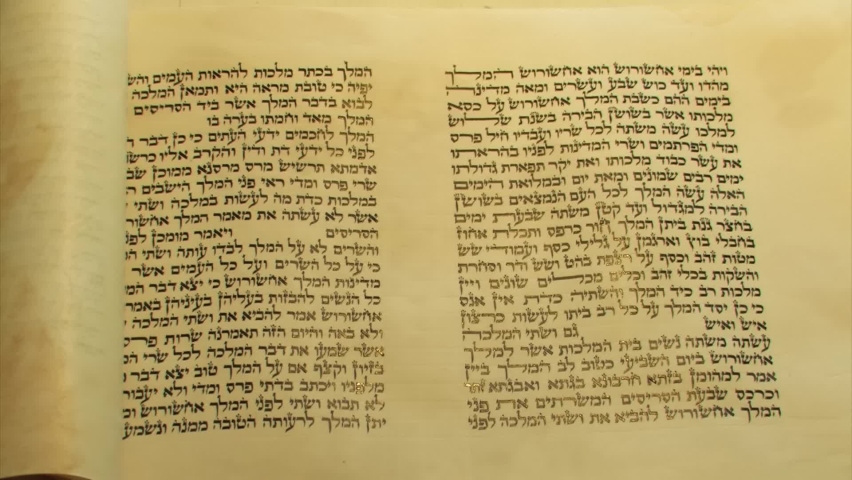 ויהי בימי אחשורוש הוא אחשורוש המלך
מהדו ועד כוש שבע ועשרים ומאה מדינה
בימים ההם כשבת המלך אחשורוש על כסא
מלכותו אשר בשושן הבירה בשנת שלוש
למלכו עשה משתה לכל שריו ועבדיו חיל פרס
ומדי הפרתמים ושרי המדינות לפניו בהראתו
את עשר כבוד מלכותו ואת יקר תפארת גדולתו
ימים רבים שמונים ומאת יום ובמלואת הימים
האלה עשה המלך לכל העם הנמצאים בשושן
הבירה למגדול ועד קטן משתה שבעת ימים
בחצר גנת ביתן המלך חור כרפס ותכלת אחוז
בחבלי בוץ וארגמן על גלילי כסף ועמודי שש
מטות זהב וכסף על רצפת בהט ושש ודר וסחרת
והשקות בכלי זהב וכלים מכלים שונים ויין
מלכות רב כיד המלך והשתיה כדת אין אנס
כי כן יסד המלך על כל רב ביתו לעשות כרצון
איש ואיש גם ושתי המלכה
עשתה משתה נשים בית המלכות אשר למלך
אחשורוש ביום השביעי כטוב לב המלך ביין
אמר למהומן בזתא חרבונא בגתא ואבגתא זתר
וכרכס שבעת הסריסים המשרתים את פני
המלך אחשורוש להביא את ושתי המלכה לפני
המלך בכתר מלכות להראות העמים והש
יפיה כי טובת מראה היא ותמאן המלכה
לבוא בדבר המלך אשר ביד הסריסים
המלך מאד וחמתו בערה בו
המלך לחכמים ידעי העתים כי כן דבר ד
לפני כל ידעי דת ודין והקרב אליו כרש
אדמתא תרשיש מרס מרסנא ממוכן שב
שרי פרס ומדי ראי פני המלך הישבים ר
במלכות כדת מה לעשות במלכה ושתי
אשר לא עשתה את מאמר המלך אחשור
הסריסים ויאמר מומכן לפנ
והשרים לא על המלך לבדו עותה ושתי ה
כי על כל השרים ועל כל העמים אשר
מדינות המלך אחשורוש כי יצא דבר המ
כל הנשים להבזות בעליהן בעיניהן באמר
אחשורוש אמר להביא את ושתי המלכה
ולא באה והיום הזה תאמרנה שרות פרס
אשר שמעו את דבר המלכה לכל שרי המ
בזיון וקצף אם על המלך טוב יצא דבר
מלפניו ויכתב בדתי פרס ומדי ולא יעבור
לא תבוא ושתי לפני המלך אחשורוש ומ
יתן המלך לרעותה הטובה ממנה ונשמע